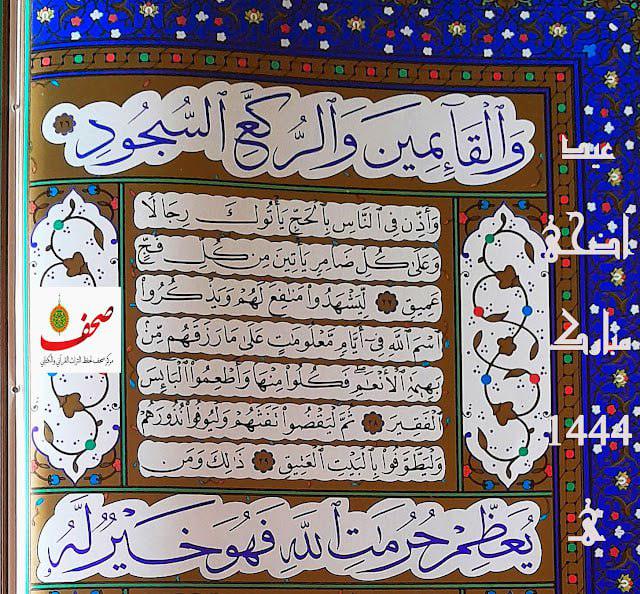 وَٱلۡقَآئِمِينَ وَٱلرُّكَّعِ ٱلسُّجُودِ ٢٦
وَأَذِّن فِي ٱلنَّاسِ بِٱلۡحَجِّ يَأۡتُوكَ رِجَالٗا
وَعَلَىٰ كُلِّ ضَامِرٖ يَأۡتِينَ مِن كُلِّ فَجٍّ
عَمِيقٖ ٢٧ لِّيَشۡهَدُواْ مَنَٰفِعَ لَهُمۡ وَيَذۡكُرُواْ
ٱسۡمَ ٱللَّهِ فِيٓ أَيَّامٖ مَّعۡلُومَٰتٍ عَلَىٰ مَا رَزَقَهُم مِّنۢ
بَهِيمَةِ ٱلۡأَنۡعَٰمِۖ فَكُلُواْ مِنۡهَا وَأَطۡعِمُواْ ٱلۡبَآئِسَ
ٱلۡفَقِيرَ ٢٨ ثُمَّ لۡيَقۡضُواْ تَفَثَهُمۡ وَلۡيُوفُواْ نُذُورَهُمۡ
وَلۡيَطَّوَّفُواْ بِٱلۡبَيۡتِ ٱلۡعَتِيقِ ٢٩ ذَٰلِكَۖ وَمَن
يُعَظِّمۡ حُرُمَٰتِ ٱللَّهِ فَهُوَ خَيۡرٞ لَّهُۥ
صحف
مركز صحف لحفظ التراث القرآني والكتابي
عيد
أضحى
مبارك
1444